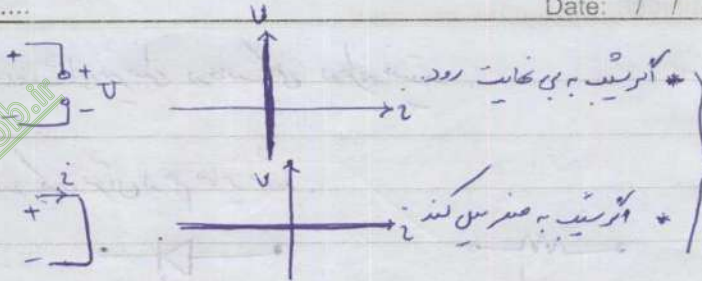 Date: / /
* اگر شیب به بی نهایت رود.
υ
i
+
-
+
υ
-
* اگر شیب به صفر میل کند
υ
i
i
+
-